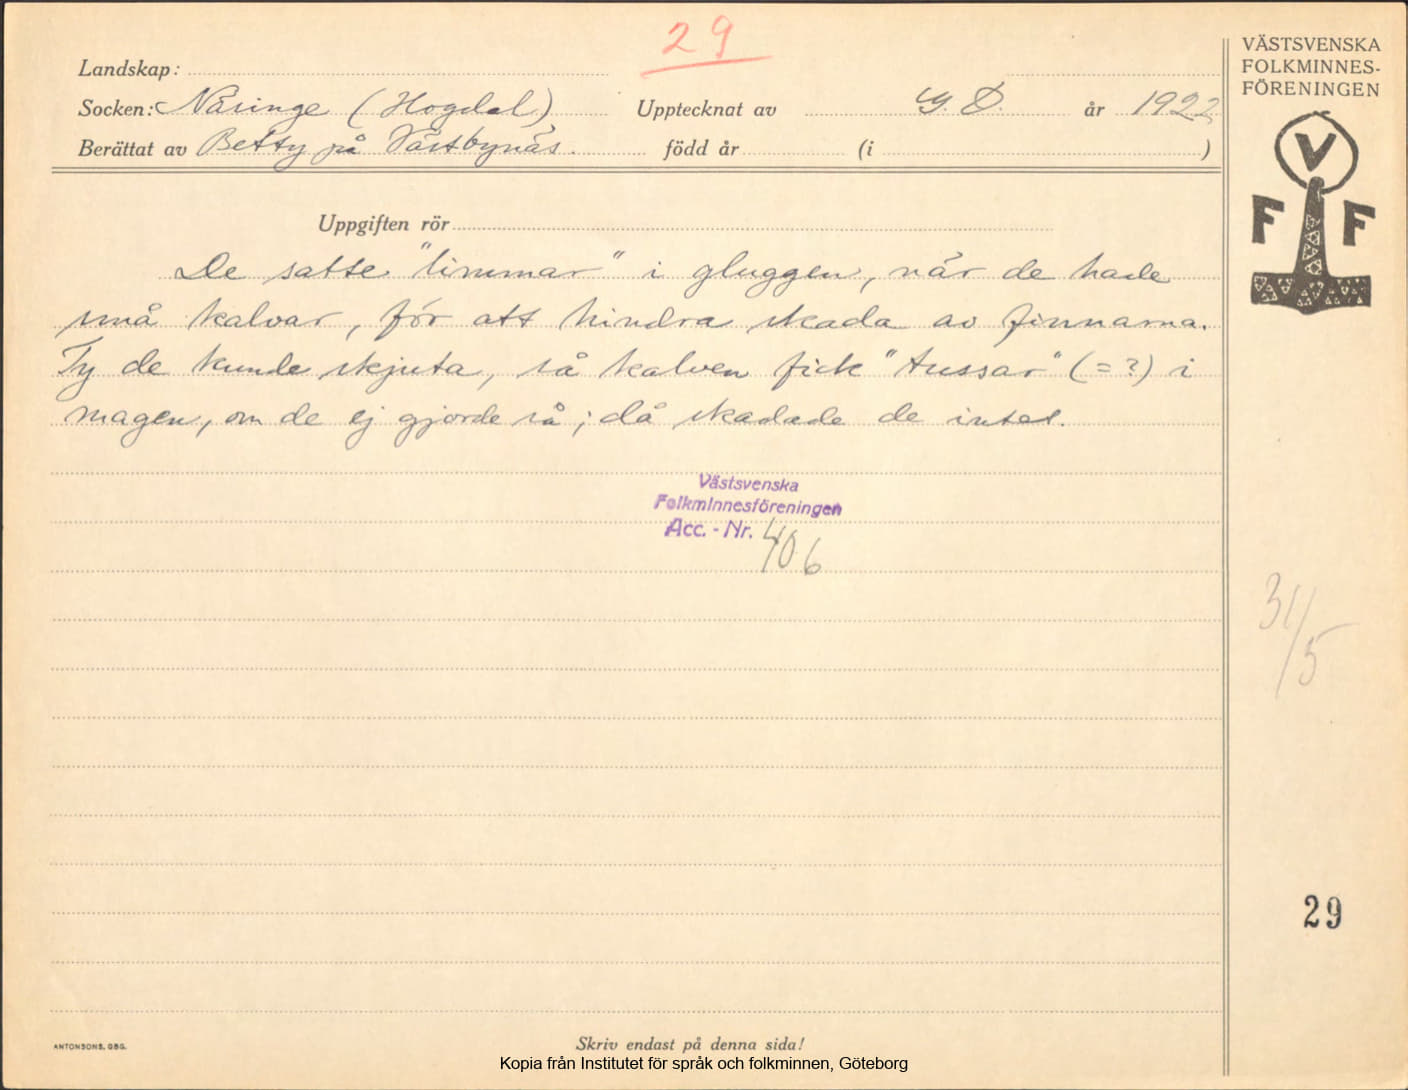 29
VÄSTSVENSKA
FOLKMINNES-
FÖRENINGEN
V
F F
Landskap:
Socken: Näsinge (Hogdal) Upptecknat av G. D. år 1922
Berättat av Betty på Västbynäs. född år (i )
Uppgiften rör
De satte "limmar" i gluggen, när de hade
små kalvar, för att hindra skada av finnarna.
Ty de kunde skjuta, så kalven fick "tussar" (=?) i
magen, om de ej gjorde så; då skadade de intet.
Västsvenska
Folkminnesföreningen
Acc. - Nr. 406
31/5
29
ANTONSONS, GBG.
Skriv endast på denna sida!
Kopia från Institutet för språk och folkminnen, Göteborg